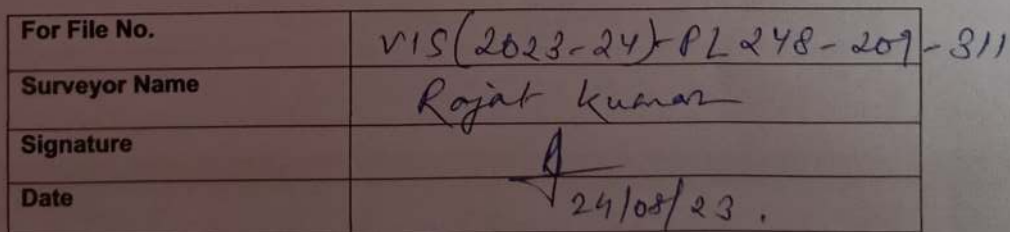 For File No. VIS(2023-24)-PL248-209-311
Surveyor Name Rajat Kumar
Signature
Date 24/08/23.